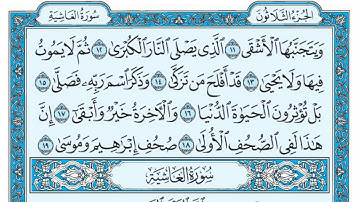 الجزء الثلاثون سورة الغاشية
ويتجنبها الأشقى ١١ الذي يصلى النار الكبرى ١٢ ثم لا يموت
فيها ولا يحيى ١٣ قد أفلح من تزكى ١٤ وذكر اسم ربه فصلى ١٥
بل تؤثرون الحيوة الدنيا ١٦ والآخرة خير وأبقى ١٧ إن
هذا لفي الصحف الأولى ١٨ صحف إبراهيم وموسى ١٩
سورة الغاشية